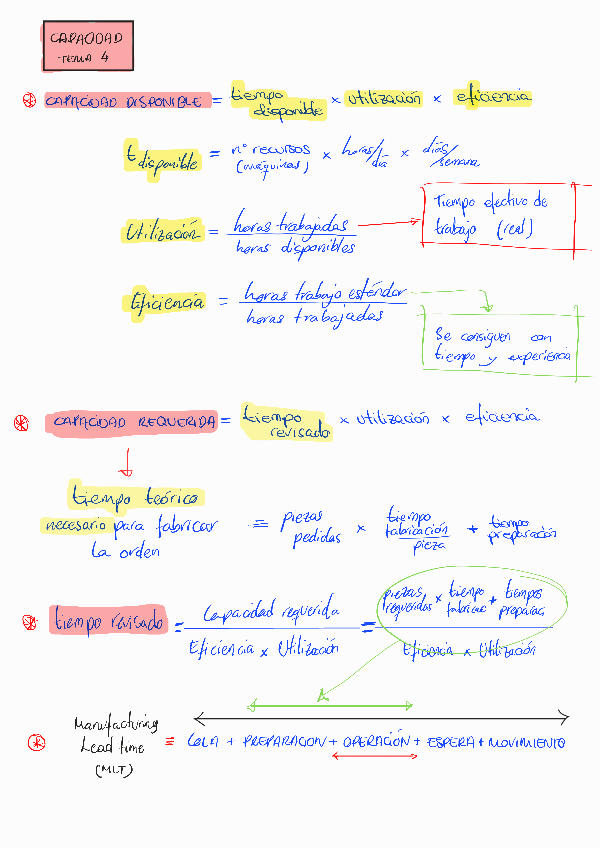 CAPACIDAD
- TEMA 4
CAPACIDAD DISPONIBLE = tiempo disponible × utilización × eficiencia
t disponible = nº recursos (máquinas) × horas/día × días/semana
Utilización = horas trabajadas / horas disponibles
Tiempo efectivo de
trabajo (real)
Eficiencia = horas trabajo estándar / horas trabajadas
Se consiguen con
tiempo y experiencia
CAPACIDAD REQUERIDA = tiempo revisado × utilización × eficiencia
tiempo teórico
necesario para fabricar
la orden
= piezas pedidas × tiempo fabricación / pieza + tiempo preparación
tiempo revisado = Capacidad requerida / Eficiencia × Utilización = piezas requeridas × tiempo fabricac + tiempos preparac / Eficiencia × Utilización
Manufacturing
Lead time
(MLT)
= COLA + PREPARACION + OPERACIÓN + ESPERA + MOVIMIENTO